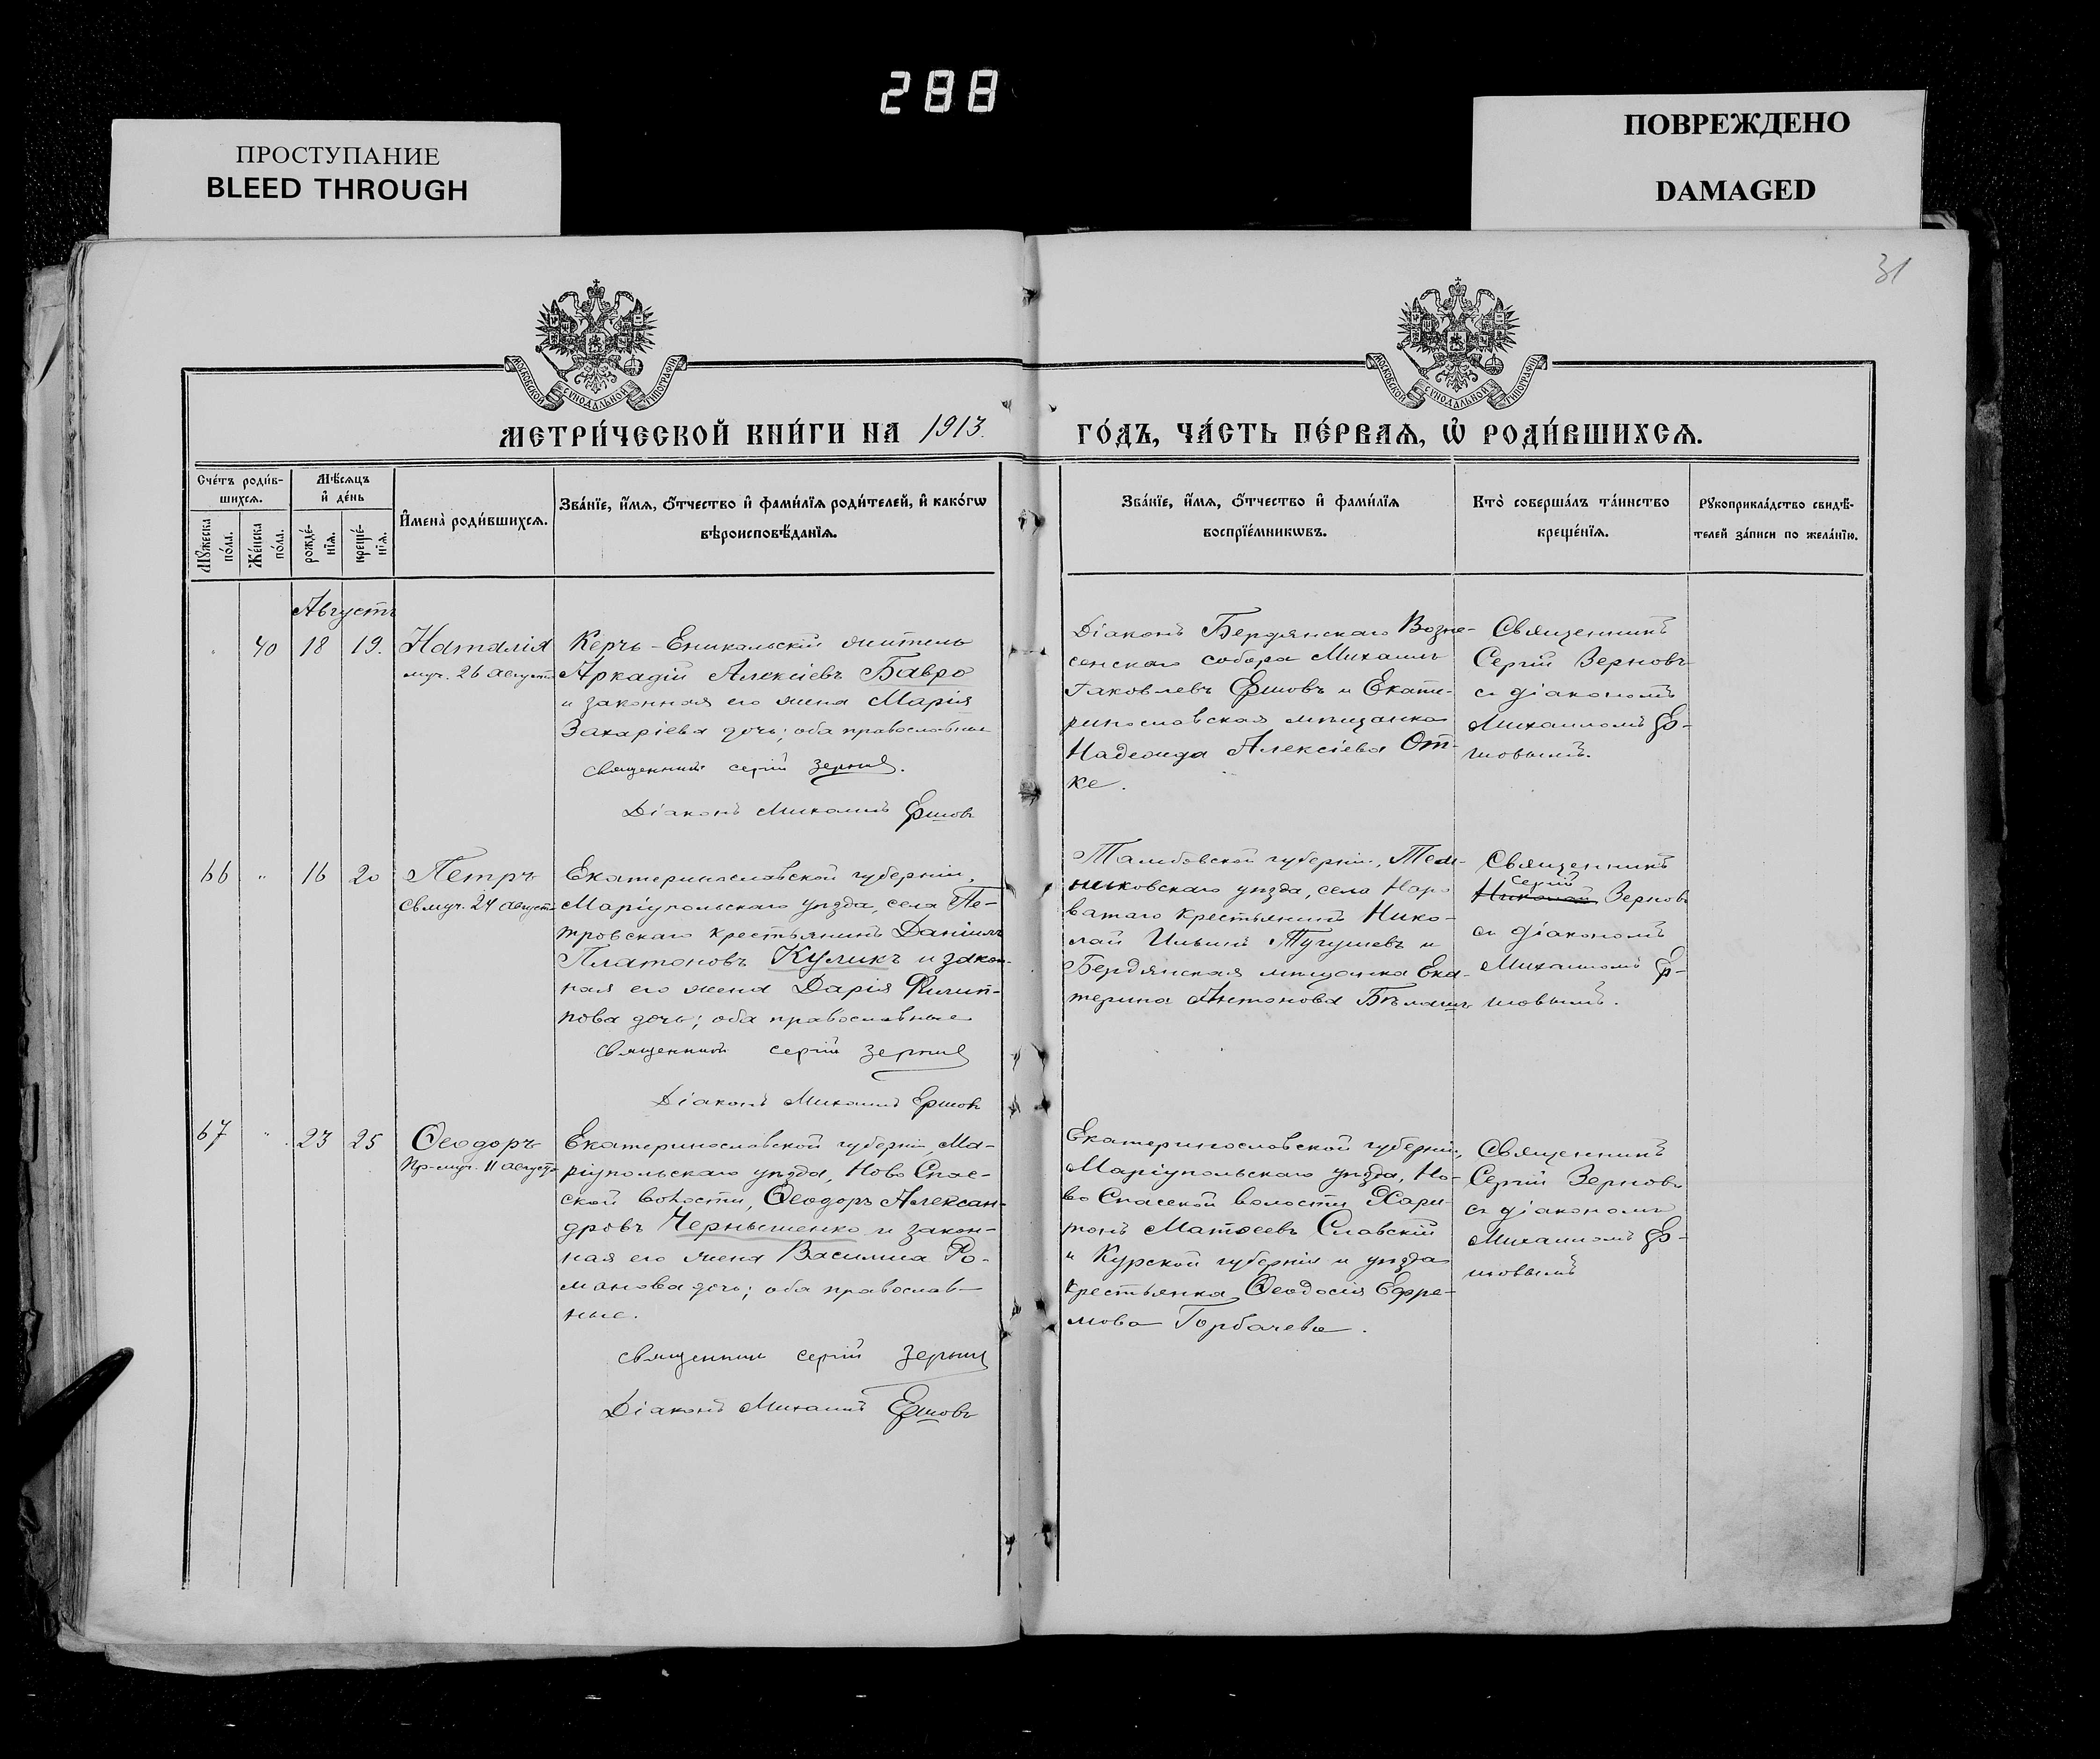 288
ПРОСТУПАНИЕ
BLEED THROUGH
ПОВРЕЖДЕНО
DAMAGED
31
МОСКОВСКОЙ СѴНОДАЛЬНОЙ ТИПОГРАФІИ
МОСКОВСКОЙ СѴНОДАЛЬНОЙ ТИПОГРАФІИ
МЕТРИ́ЧЕСКОЙ КНИ́ГИ НА 1913. ГО́ДЪ, ЧА́СТЬ ПЕ́РВАЯ, Ѽ РОДИ́ВШИХСЯ.
Сче́тъ роди́в-
шихся.
Мѣ́сяцъ
и҆ де́нь
Мꙋ́жеска
по́ла.
Же́нска
по́ла.
рожде́-
нїя.
креще́-
нїя.
И҆мена̀ роди́вшихся.
Зва́нїе, и҆́мя, ѻ҆́тчество и҆ фами́лїя роди́телей, и҆ како́гѡ
вѣроисповѣ́данїя.
Зва́нїе, и҆́мя, ѻ҆́тчество и҆ фами́лїя
воспрїе́мникѡвъ.
Кто̀ соверша́лъ та́инство
креще́нїя.
Рꙋкоприкла́дство свидѣ́-
телей за́писи по жела́нїю.
Августъ
40 18 19. Наталія
муч. 26 августа
Керчь-Еникальскій житель
Аркадій Алексіевъ Бавро
и законная его жена Марія
Захаріева дочь; оба православные
священникъ Сергій Зерновъ.
Діаконъ Михаилъ Ершовъ
Діаконъ Бердянскаго Возне-
сенскаго собора Михаилъ
Іаковлевъ Ершовъ и Екате-
ринославская мѣщанка
Надежда Алексіева От-
ке.
Священникъ
Сергій Зерновъ
съ діакономъ
Михаиломъ Ер-
шовымъ.
66 " 16 20 Петръ
Свмуч. 24 августа
Екатеринославской губерніи,
Маріупольскаго уѣзда, села Пе-
тровскаго крестьянинъ Даніилъ
Платоновъ Куликъ и закон-
ная его жена Дарія Филип-
пова дочь; оба православные
Священникъ Сергій Зерновъ
Діаконъ Михаилъ Ершовъ
Тамбовской губерніи, Тем-
никовскаго уѣзда, села Наро
ватаго крестьянинъ Нико-
лай Ильинъ Тугушевъ и
Бердянская мѣщанка Ека-
терина Антонова
Священникъ
Сергій
Николай Зерновъ
съ діакономъ
Михаиломъ Ер-
шовымъ.
67 " 23 25 Ѳеодоръ
Пр-муч. 11 августа
Екатеринославской губерніи, Ма-
ріупольскаго уѣзда, Ново Спас-
ской волости, Ѳеодоръ Алексан-
дровъ Чернышенко и закон-
ная его жена Василиса Ро-
манова дочь; оба православ-
ные.
Священникъ Сергій Зерновъ
Діаконъ Михаилъ Ершовъ
Екатеринославской губерніи,
Маріупольскаго уѣзда, Но-
во Спасской волости Хари-
тонъ Матѳеевъ Славскій
и Курской губерніи и уѣзда
крестьянка Ѳеодосія Ефре-
мова Горбачева.
Священникъ
Сергій Зерновъ
съ діакономъ
Михаиломъ Ер-
шовымъ